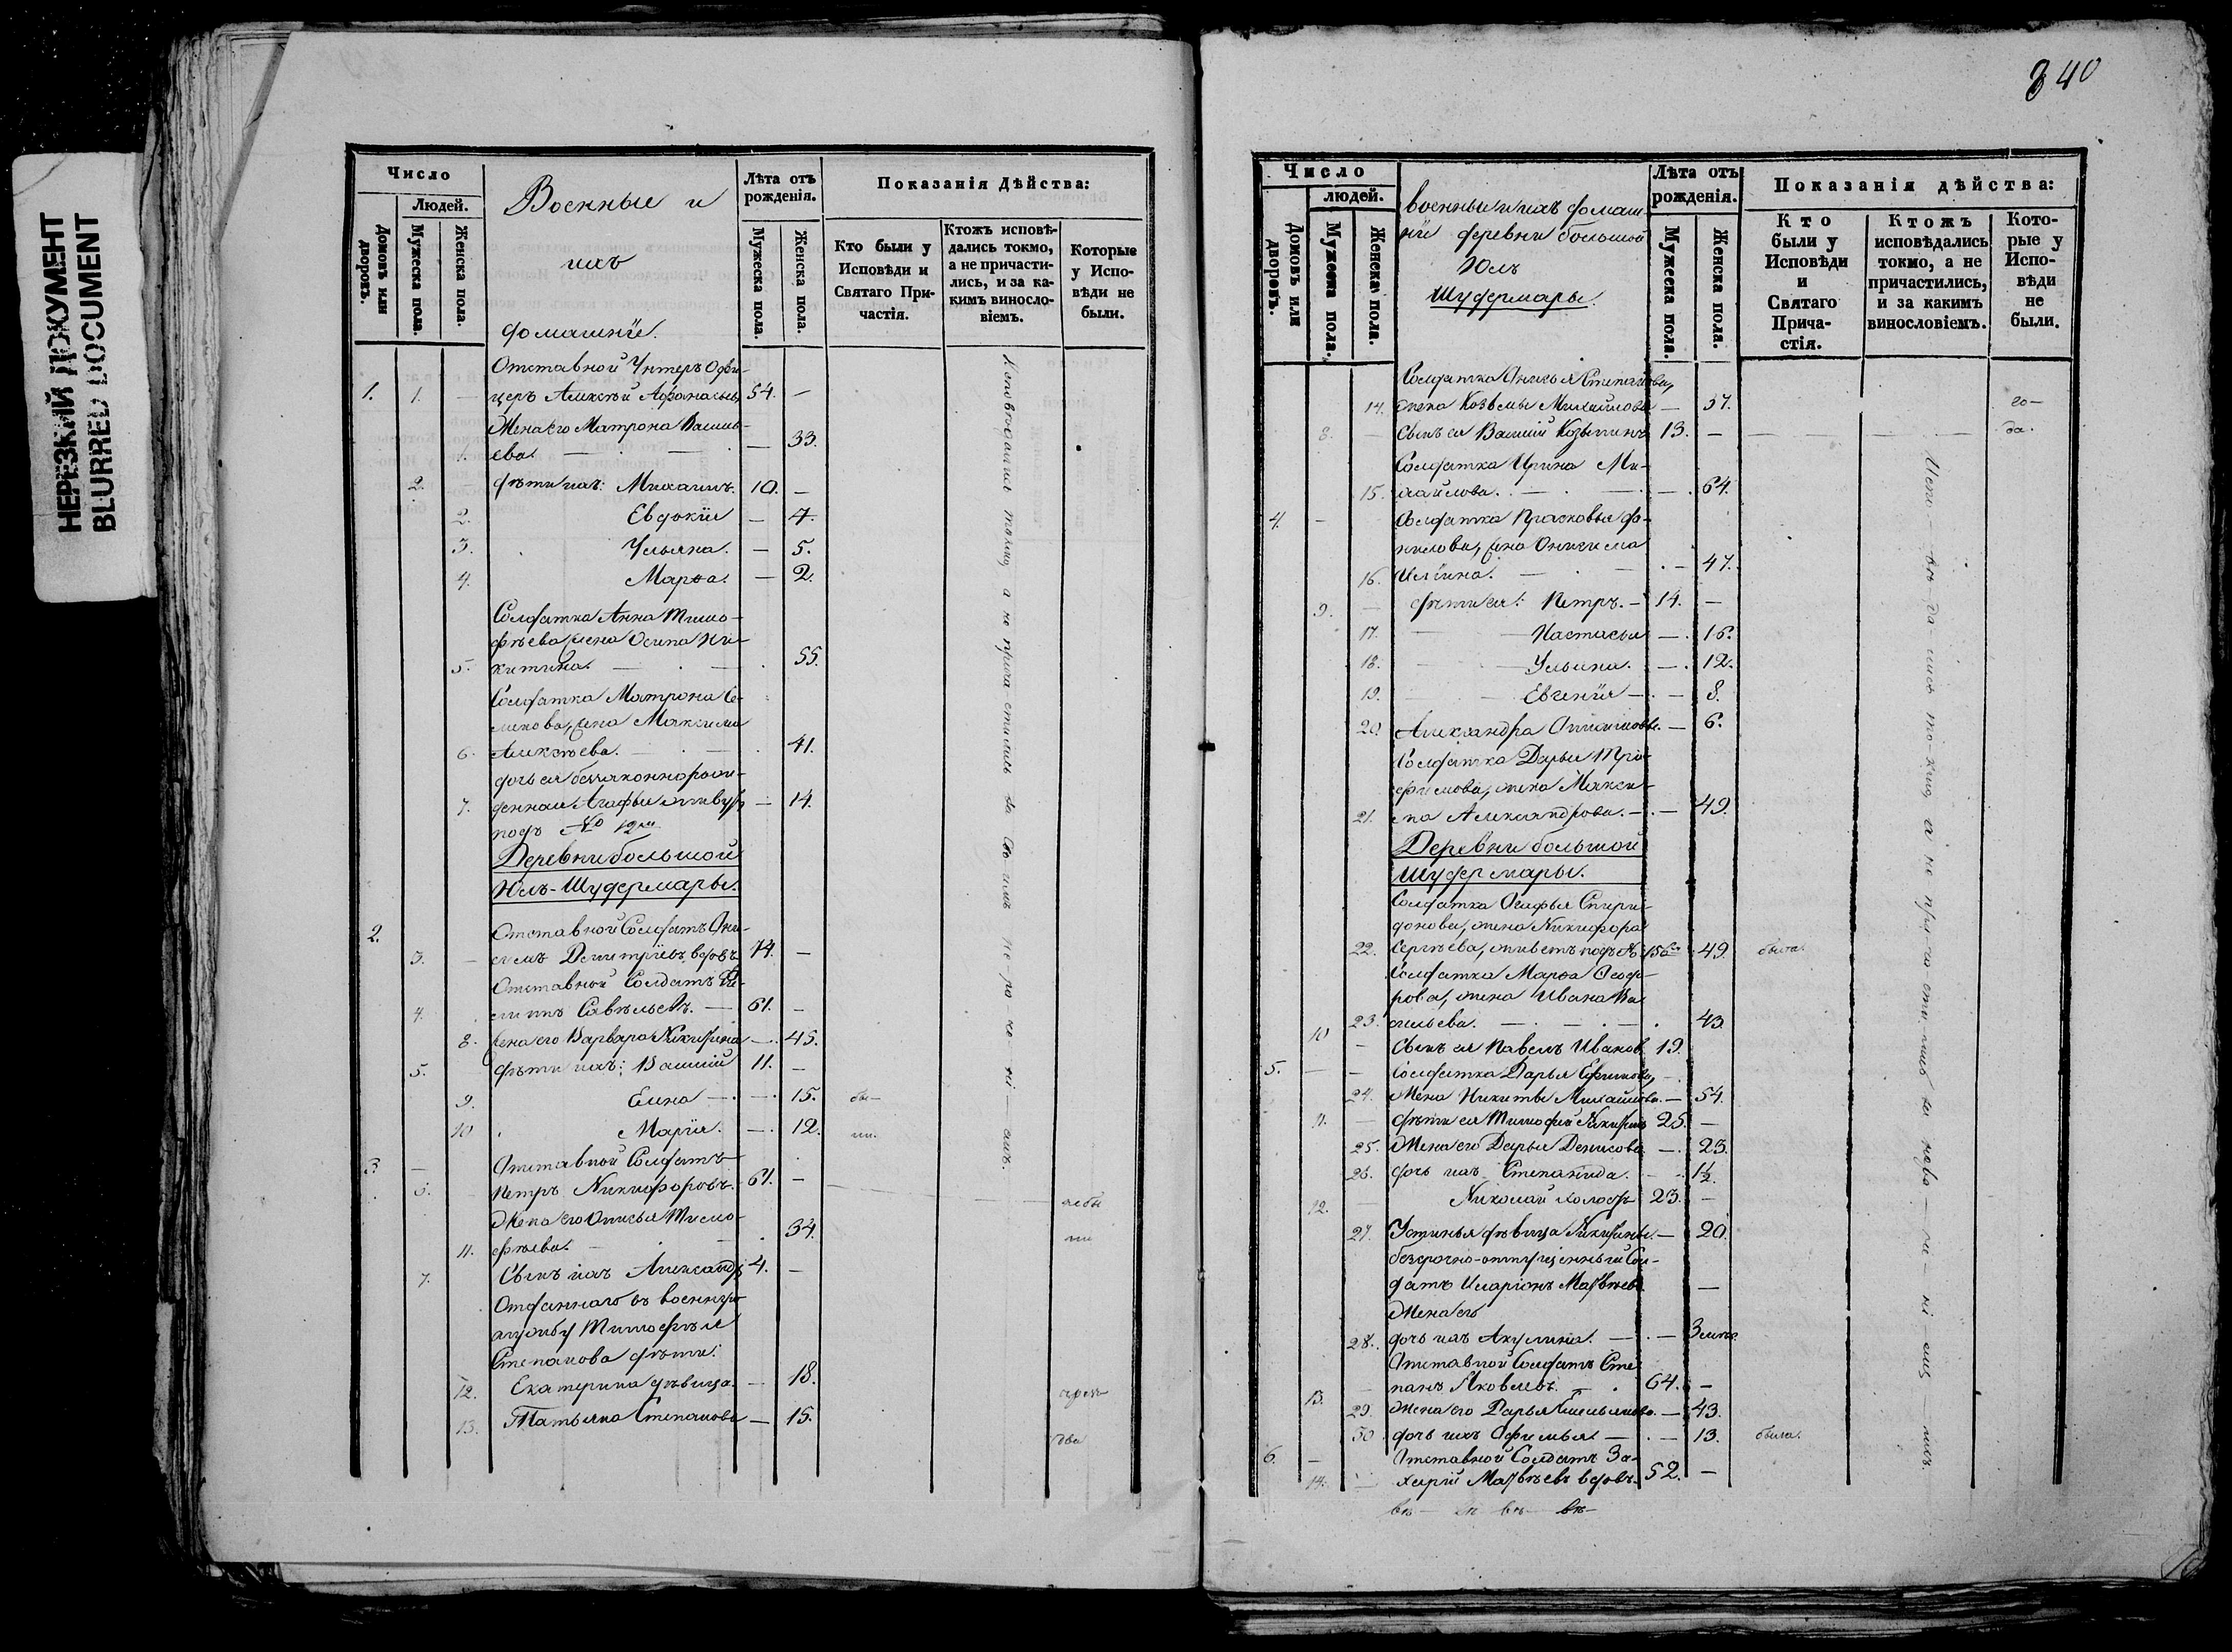 НЕРЕЗКИЙ ДОКУМЕНТ
BLURRED DOCUMENT
Число
Людей.
Домовъ или дворовъ.
Мужеска пола.
Женска пола.
Военные и
ихъ
домашніе.
Лѣта отъ рожденія.
Мужеска пола.
Женска пола.
Показанія Дѣйства:
Кто были у Исповѣди и Святаго Причастія.
Ктожъ исповѣдались токмо, а не причастились, и за какимъ винословіемъ.
Которые у Исповѣди не были.
Отставной Унтеръ Офи-
1. 1. — церъ Алексѣй Афанасьевъ 54. —
Жена его Матрона Василь-
1. ева. — 33.
2. — дѣти ихъ: Михаилъ. 10. —
2. Евдокія — 7.
3. Ульяна. — 5.
4. Марѳа. — 2.
Солдатка Анна Тимо-
фѣева, жена Осипа Ни-
5. китина. — 55.
Солдатка Матрона Се-
менова, жена Максима
6. Алексѣева. — 41.
дочь ея беззаконнорож-
7. денная Агафья живутъ — 14.
подъ № 12мъ
Деревни большой
Юлъ-Шудермары.
2. Отставной Солдатъ Они-
3. — симъ Дмитріевъ, вдовъ 74. —
Отставной Солдатъ Фи-
4. липпъ Савельевъ. — 61. —
8. жена его Варвара Никитина — 45.
5. дѣти ихъ: Василій 11. —
9. Елена — 15. бы-
10 Марія. — 12. ли.
3. — Отставной Солдатъ
6. Петръ Никифоровъ. 61. —
Жена его Анисья Тимо-
11. фѣева. — 34.
7. Сынъ ихъ Александръ 4. —
Отданнаго въ военную
службу Тимофѣя
Степанова дѣти:
12. Екатерина дѣвица. — 18.
13. Татьяна Степанова — 15.
Исповѣдались токмо, а не прича стились за
340
Число
людей.
Домовъ или дворовъ.
Мужеска пола.
Женска пола.
военные и ихъ домаш-
ніе деревни большой
Юлъ
Шудермары.
Лѣта отъ рожденія.
Мужеска пола.
Женска пола.
Показанія дѣйства:
Кто были у Исповѣди и Святаго Причастія.
Ктожъ исповѣдались токмо, а не причастились, и за какимъ винословіемъ.
Которые у Исповѣди не были.
Солдатка Анисья Степанова,
14. жена Козьмы Михайлова — 37.
8. — Сынъ ея Василій Козьминъ 13. —
Солдатка Ирина Ми-
15. хайлова. — 64.
4. — Солдатка Прасковья Да-
нилова, жена Онисима
16. Ильина. — 47.
9. — дѣти ея: Петръ. — 14. —
17. Настасья — 16.
18. Ульяна. — 12.
19. Евгенія — 8.
20. Александра Онисимовы. — 6.
Солдатка Дарья Тро-
фимова, жена Макси-
21. ма Александрова. — 49.
Деревни большой
Шудермары.
Солдатка Агафья Спири-
донова, жена Никифора
22. Сергѣева, живетъ подъ № 15мъ 49. была.
Солдатка Марѳа Ѳедо-
рова, жена Ивана Ва-
23. сильева. — 43.
10 — Сынъ ея Павелъ Иванов. 19.
5. — — Солдатка Дарья Ефимова,
24. Жена Никиты Михайлова. — 54.
11. — дѣти ея Тимофей Никитинъ 25. —
25. Жена его Дарья Денисова — 23.
26. дочь ихъ Степанида. — 1½.
12. Николай холостъ 23. —
27. Устинья дѣвица Никитины. — 20.
безсрочно-отпущенный Сол-
датъ Иларіонъ Матвѣевъ. —
Жена его
28. дочь ихъ Акулина. — 3
Отставной Солдатъ Сте-
13. — панъ Яковлевъ. — 64. —
29. Жена его Дарья Емельянова. — 43.
30 дочь ихъ Афимья. — 13. была.
6. — Отставной Солдатъ За-
14. — харій Матвѣевъ вдовъ. 52. —